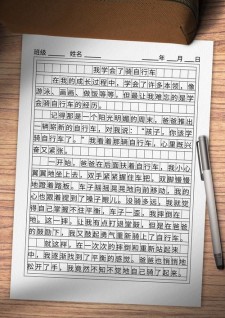 班级 姓名 年 月 日
我学会了骑自行车
在我的成长过程中，学会了许多本领，像
游泳、画画、做饭等等。但最让我难忘的是学
会骑自行车的经历。
记得那是一个阳光明媚的周末，爸爸推出
一辆崭新的自行车，对我说：“孩子，你该学
骑自行车了。”我看着那辆自行车，心里既兴
奋又紧张。
一开始，爸爸在后面扶着自行车，我小心
翼翼地坐上去，双手紧紧握住车把，双脚慢慢
地蹬着踏板。车子摇摇晃晃地向前移动，我的
心也跟着提到了嗓子眼儿。没骑多远，我就觉
得自己掌握不住平衡，车子一歪，我摔倒在
地。这一摔，让我有点打退堂鼓，但是在爸爸
的鼓励下，我又鼓起勇气重新骑上了自行车。
就这样，在一次次的摔倒和重新站起来
中，我逐渐找到了平衡的感觉。爸爸也悄悄地
松开了手，我竟然不知不觉地自己骑了起来。